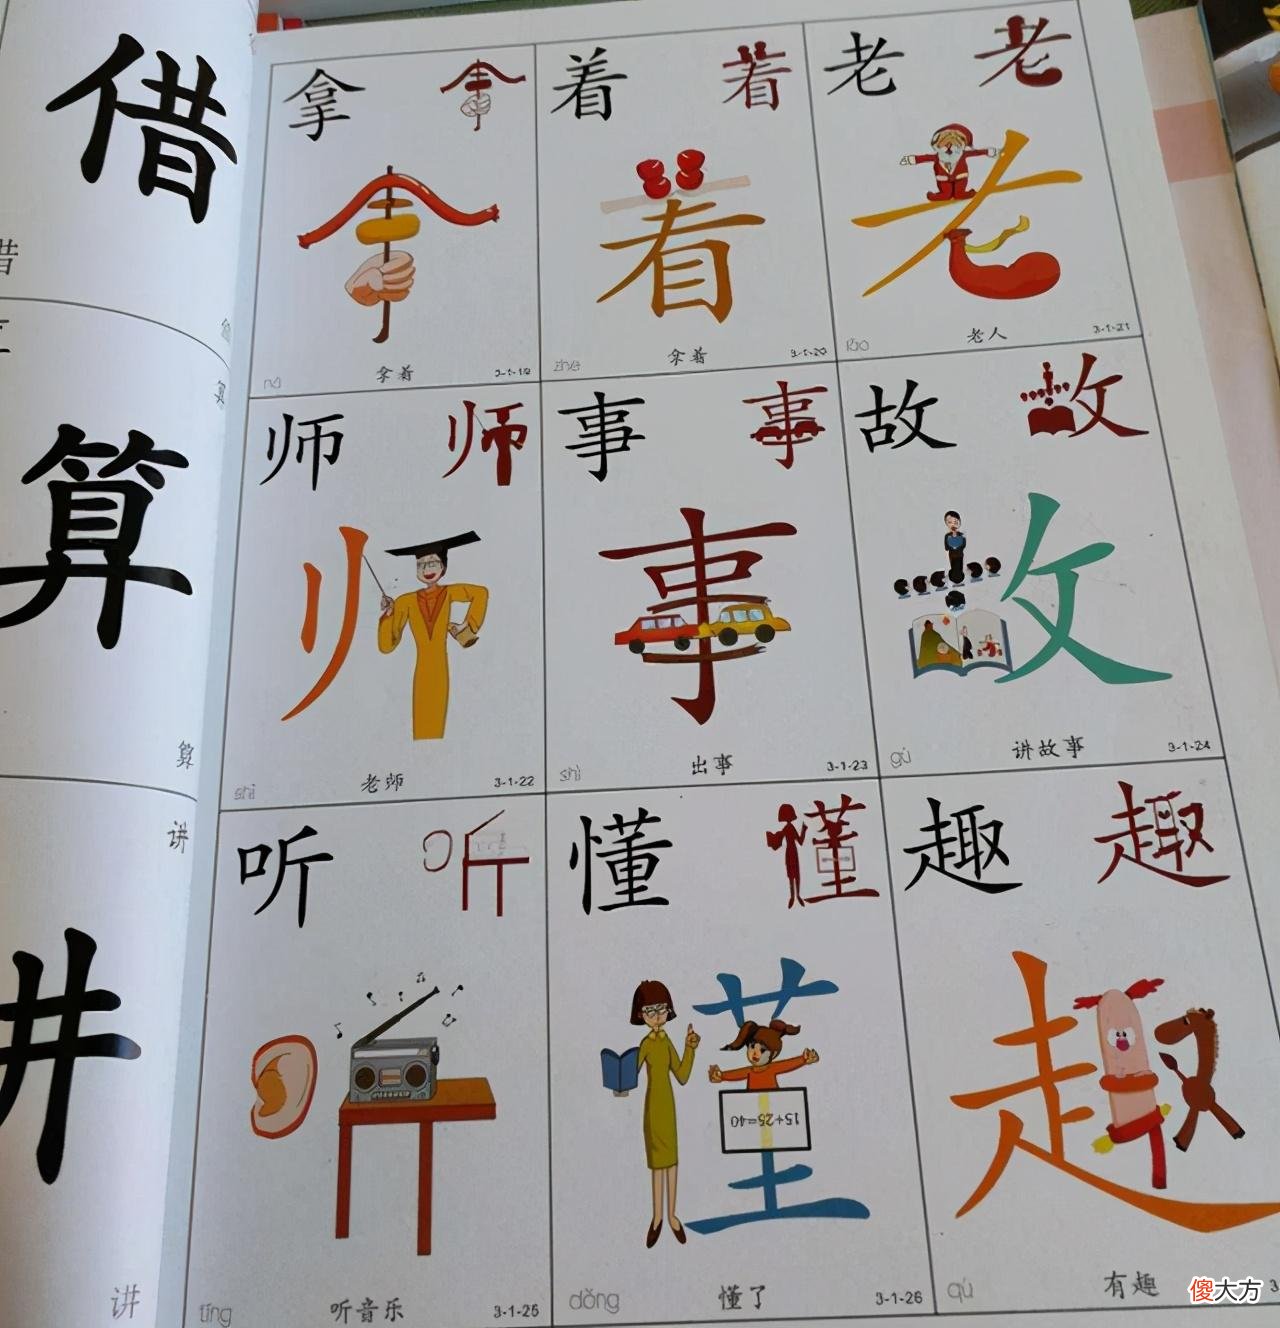 借
借
算
算
算
讲
讲
拿
ná
拿着
3-1-19
着
zhe
拿着
3-1-20
老
lǎo
老人
3-1-21
师
shī
老师
3-1-22
事
shì
出事
3-1-23
故
gù
讲故事
3-1-24
听
tīng
听音乐
3-1-25
懂
15+25=40
dǒng
懂了
3-1-26
趣
qù
有趣
3
傻大方